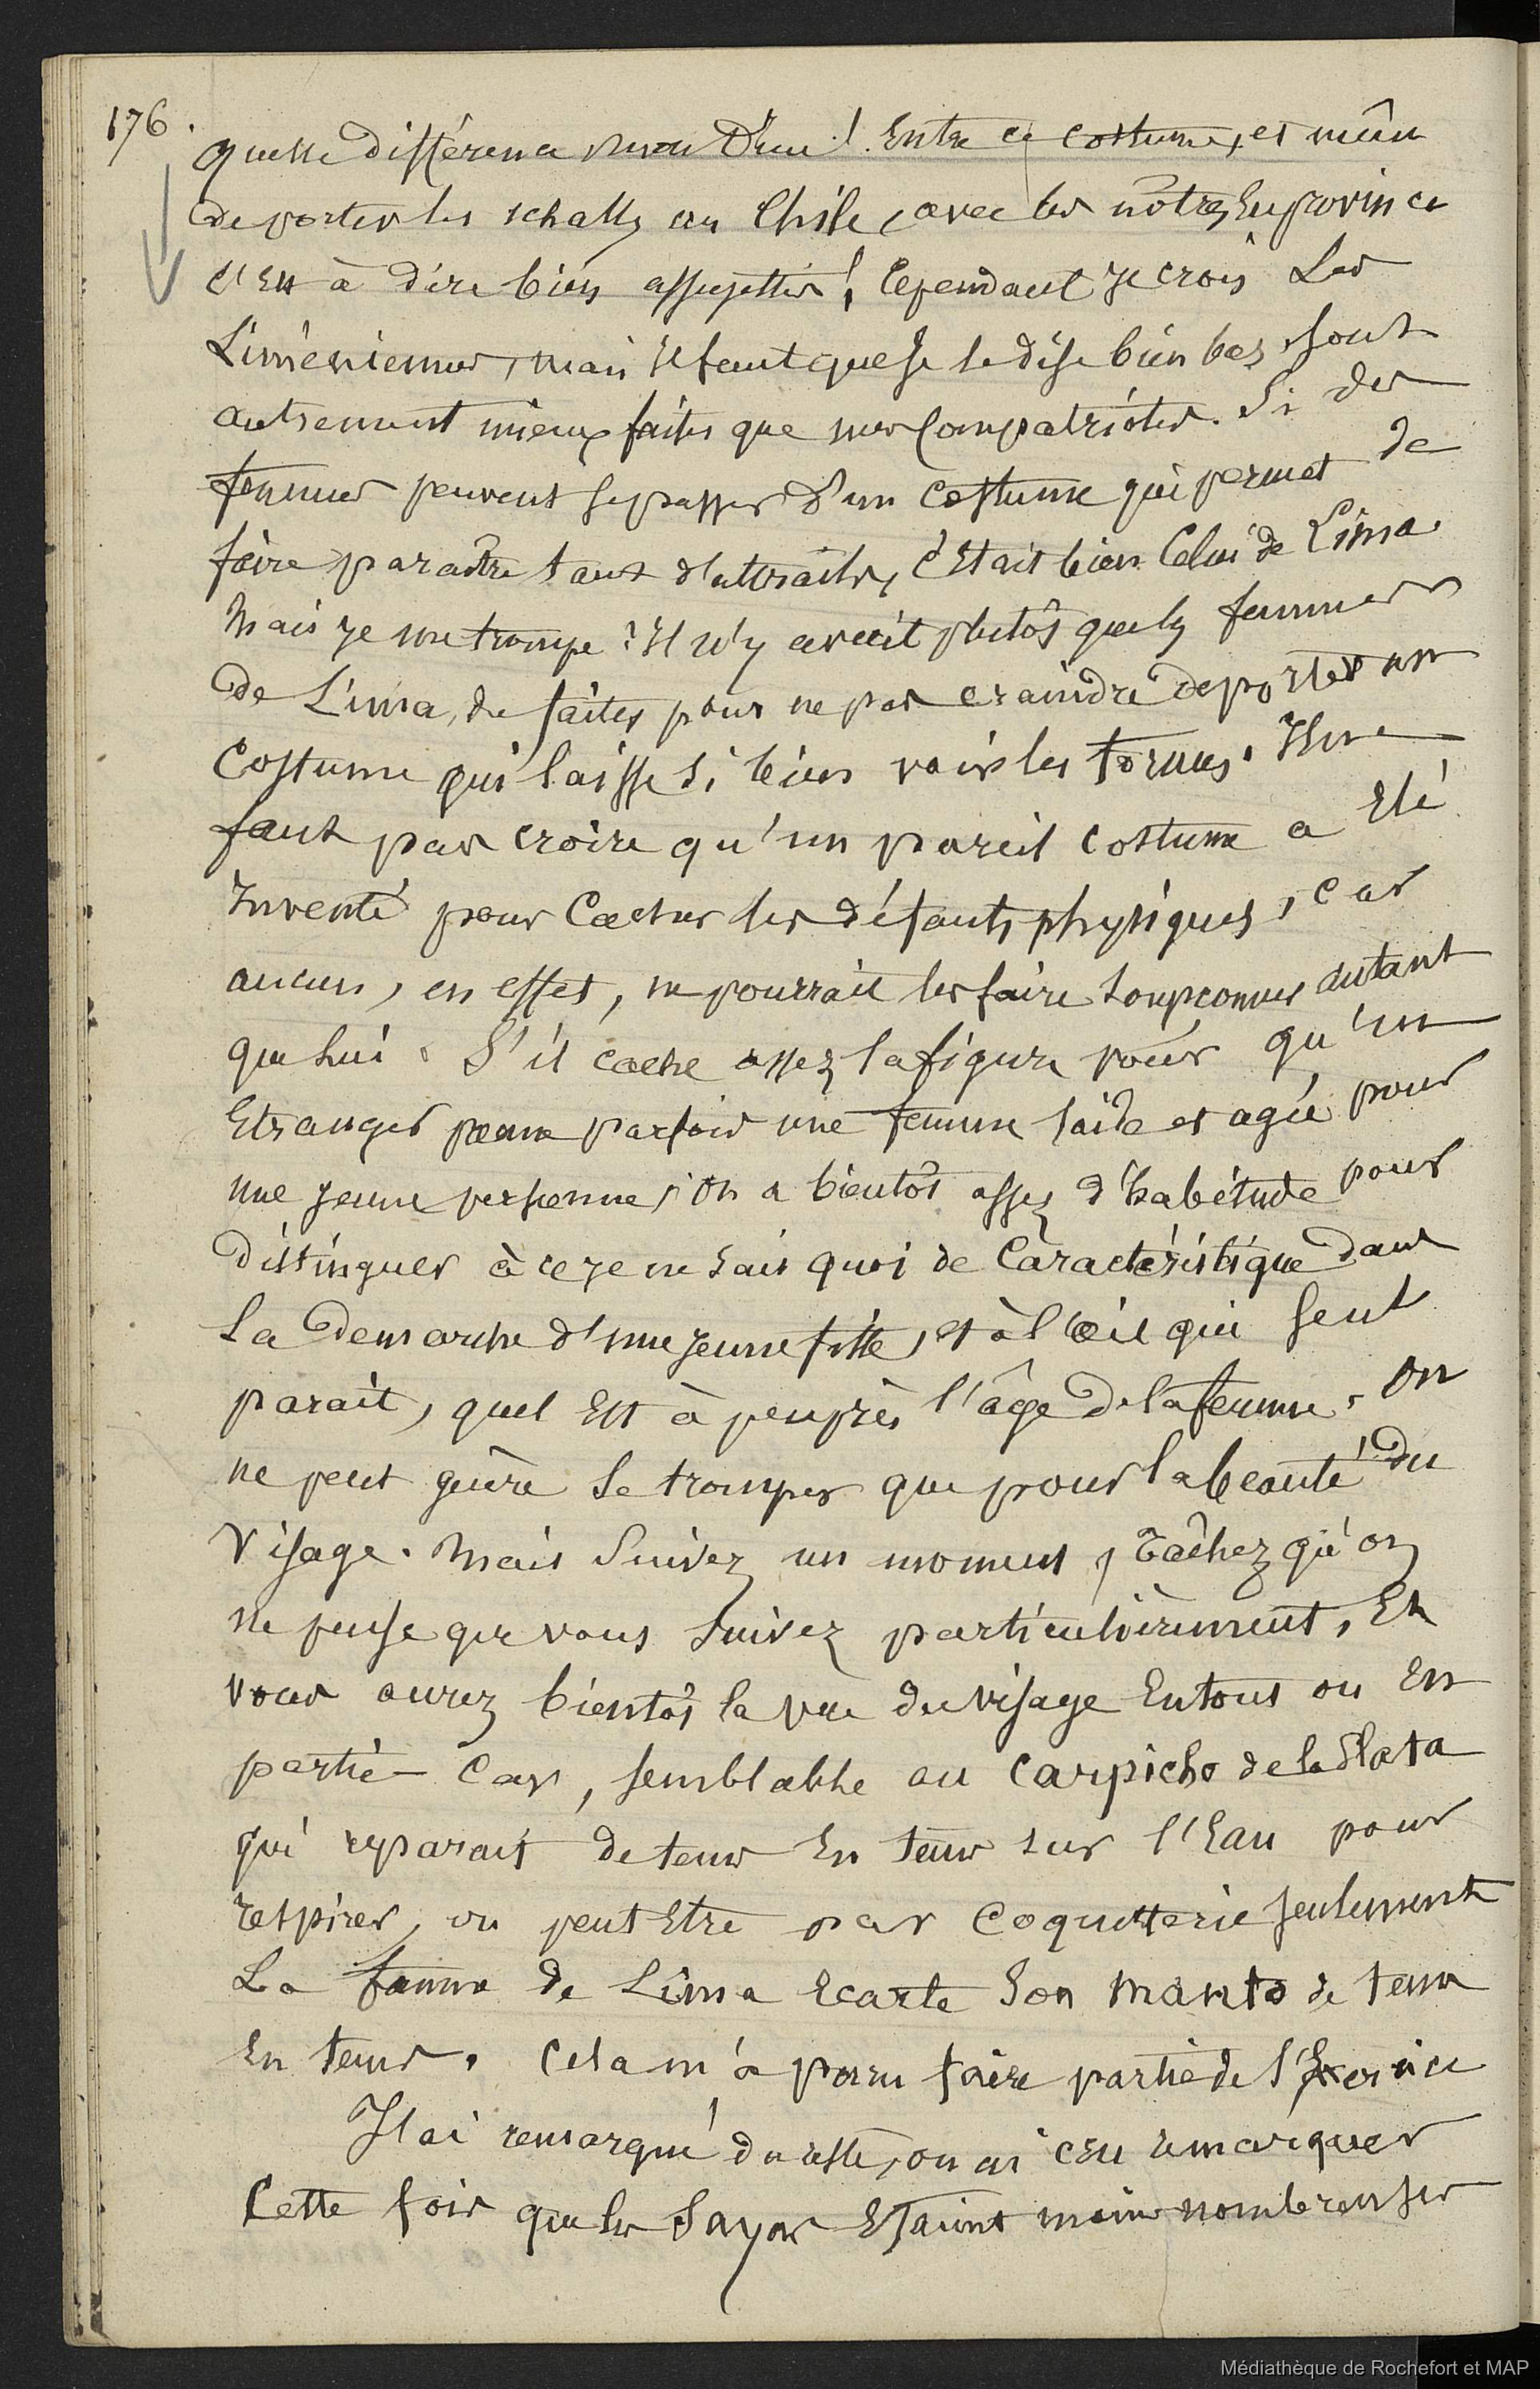 176.
quelle différence mon Dieu! Entre ce costume, et même
de porter les schalls au Chile, avec les nôtres En province
c'Est à dire bien assujettis! Cependant je crois Les
Liméniennes, mais Il faut que je le dise bien bas, sont
autrement mieux faites que mes compatriotes. Si des
femmes peuvent se passer d'un costume qui permet de
faire paraître tant d'attraits, c'Etait bien Celui de Lima.
Mais je me trompe: Il n'y avait plutôt que les femmes
de Lima, de faites pour ne pas craindre de porter un
Costume qui laisse si bien voir les formes. Il ne
faut pas croire qu'un pareil costume a Eté
Inventé pour Cacher les défauts physiques, car
aucun, en effet, ne pourrait les faire soupconner autant
que lui. S'il cache assez la figure pour qu'un
Etranger prenne parfois une femme laide et agée pour
une jeune personne, On a bientôt assez d'habitude pour
distinguer à ce je ne sais quoi de Caractéristique dans
La demarche d'une jeune fille, et à l'œil qui seul
parait, quel Est à peu près l'âge de la femme. On
ne peut guère se tromper que pour la beauté du
Visage. Mais Suivez un moment, tâchez qu'on
ne pense que vous suivez particulièrement, Et
vous aurez bientôt la vue du visage En tout ou En
partie – Car, semblable au Carpicho de la Plata
qui reparait de tems En tems sur l'Eau pour
respirer, ou peut Etre par Coquetterie seulement
La femme de Lima Ecarte Son manto de tems
En tems. Cela m'a paru faire partie de l'Exercice
J'ai remarqué du reste, ou ai cru remarquer
Cette fois que les Sayas Etaient moins nombreuses
Médiathèque de Rochefort et MAP